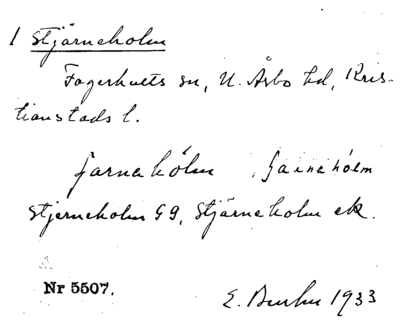 1 Stjärneholm
Fagerhults sn, N. Åsbo hd, Kris-
tianstads l.
Jarnahólm Jarnahólm
Stjerneholm G9, Stjärneholm ek.
Nr 5507.
E. 1933